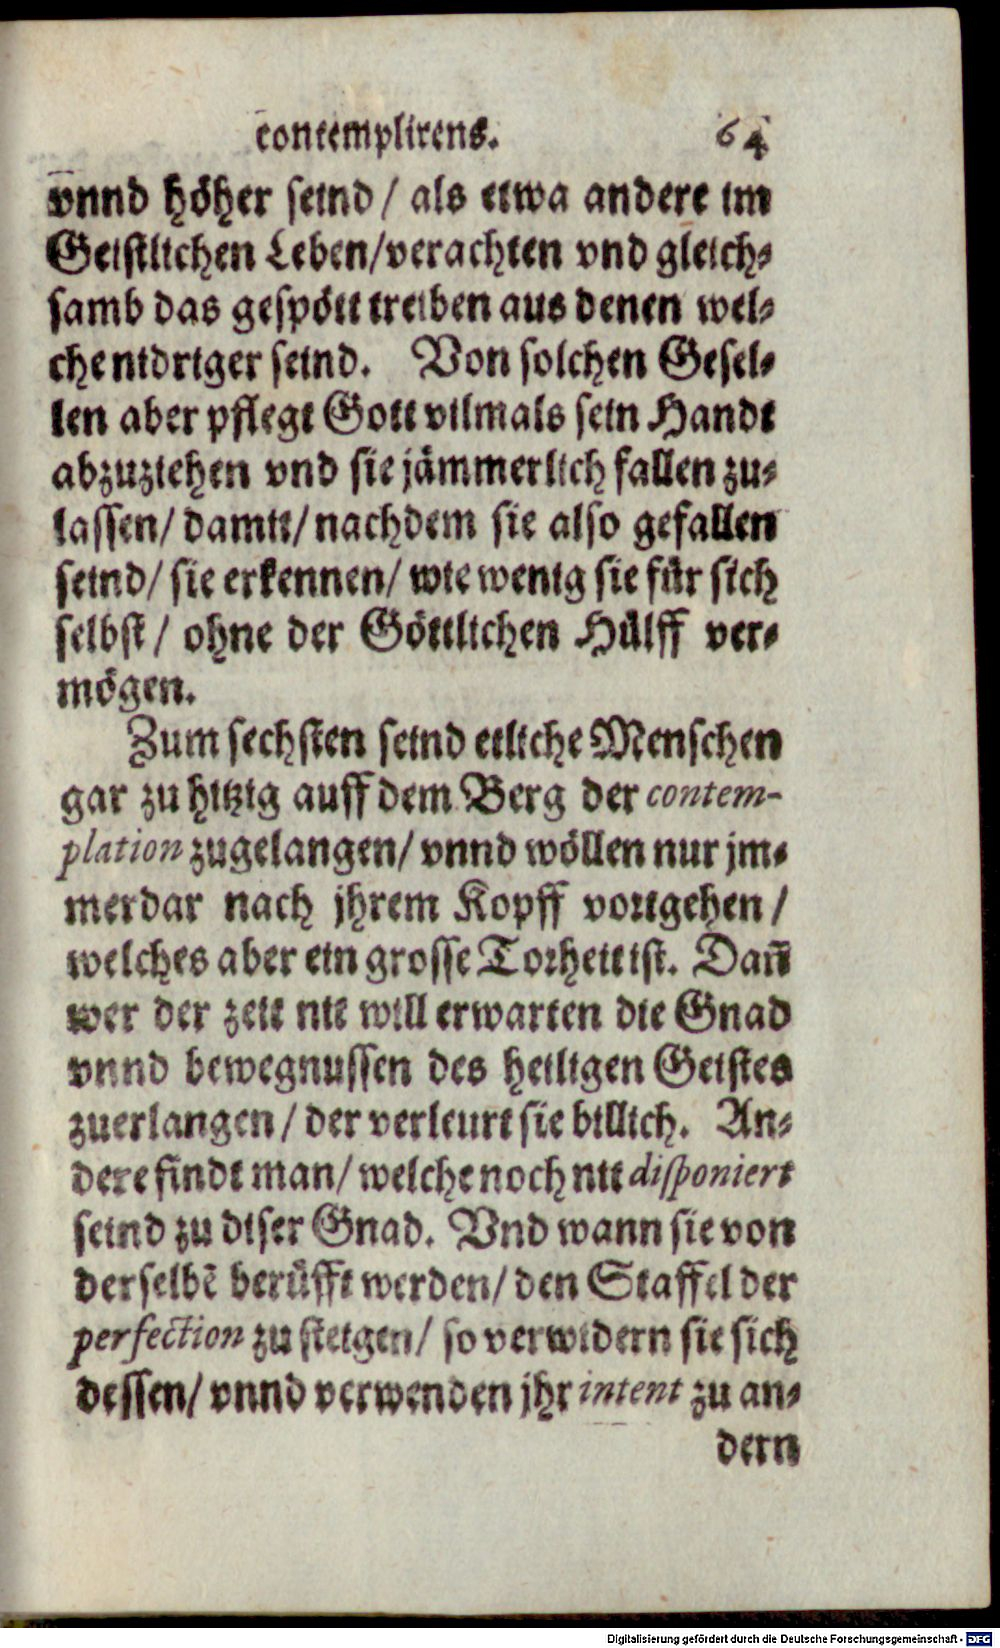 contemplirens. 64
vnnd höher seind / als etwa andere im
Geistlichen Leben/verachten vnd gleich-
samb das gespött treiben aus denen wel-
che nidriger seind. Von solchen Gesel-
len aber pflegt Gott vilmals sein Handt
abzuziehen vnd sie jämmerlich fallen zu-
lassen/ damit/ nachdem sie also gefallen
seind/ sie erkennen/ wie wenig sie für sich
selbst / ohne der Göttlichen Hülff ver-
mögen.
Zum sechsten seind etliche Menschen
gar zu hitzig auff dem Berg der contem-
plation zugelangen/ vnnd wöllen nur jm-
merdar nach jhrem Kopff vortgehen /
welches aber ein grosse Torheit ist. Dañ
wer der zeit nit will erwarten die Gnad
vnnd bewegnussen des heiligen Geistes
zuerlangen / der verleurt sie billich. An-
dere findt man/ welche noch nit disponiert
seind zu diser Gnad. Vnd wann sie von
derselbē berüfft werden/ den Staffel der
perfection zu steigen/ so verwidern sie sich
dessen/ vnnd verwenden jhr intent zu an-
dern
Digitalisierung gefördert durch die Deutsche Forschungsgemeinschaft - DFG